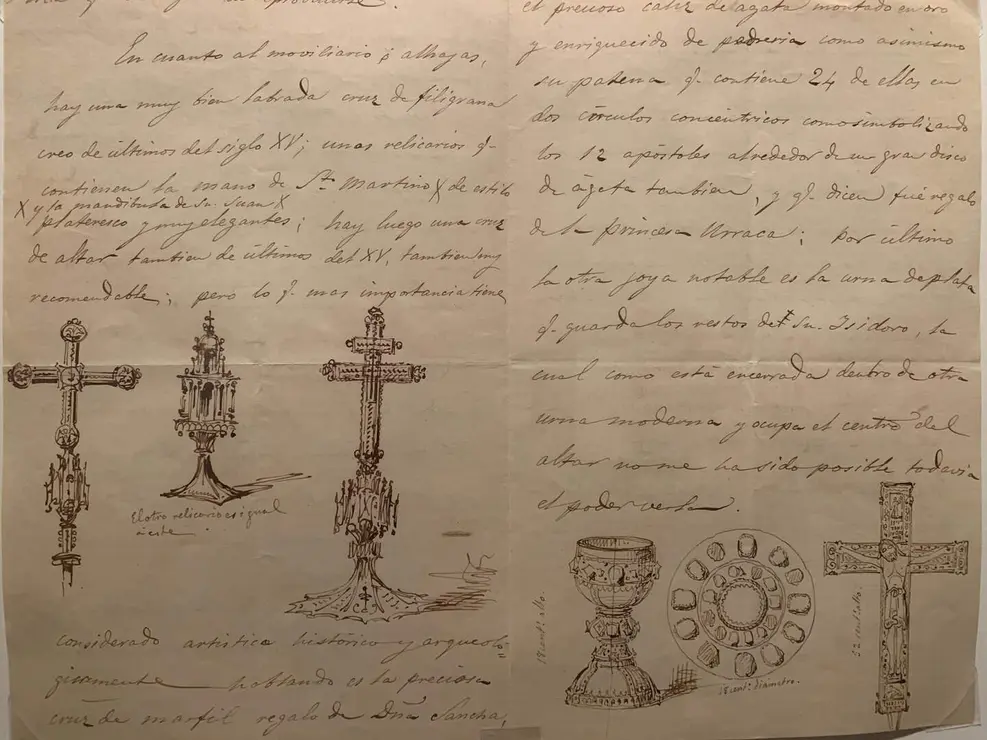 En cuanto al moviliario ó alhajas,
hay una muy bien labrada cruz de filigrana
creo de últimos del siglo XV; unas relicarios q.
contienen la mano de Sto. Martino X de estilo
X y la mandibula de Sn. Juan X
plateresco y muy elegantes; hay luego una cruz
de altar tambien de últimos del XV, tambien muy
recomendable; pero lo q. mas importancia tiene
El otro relicario es igual
á este
considerado artistica histórico y arqueoló=
gicamente hablando es la preciosa
cruz de marfil regalo de Dña Sancha,
el precioso caliz de agata montado en oro
y enriquecido de pedreria como asimismo
su patena q. contiene 24 de ellas en
dos círculos concéntricos como simbolizando
los 12 apóstoles alrededor de un gran disco
de ágata tambien, y q. dicen fué regalo
de la princesa Urraca; por último
la otra joya notable es la urna de plata
q. guarda los restos de Sn. Isidoro, la
cual como está encerrada dentro de otra
urna moderna y ocupa el centro del
altar no me ha sido posible todavia
el poder verla.
18 cent.s alto.
18 cent.s diámetro.
52 cent.s alto